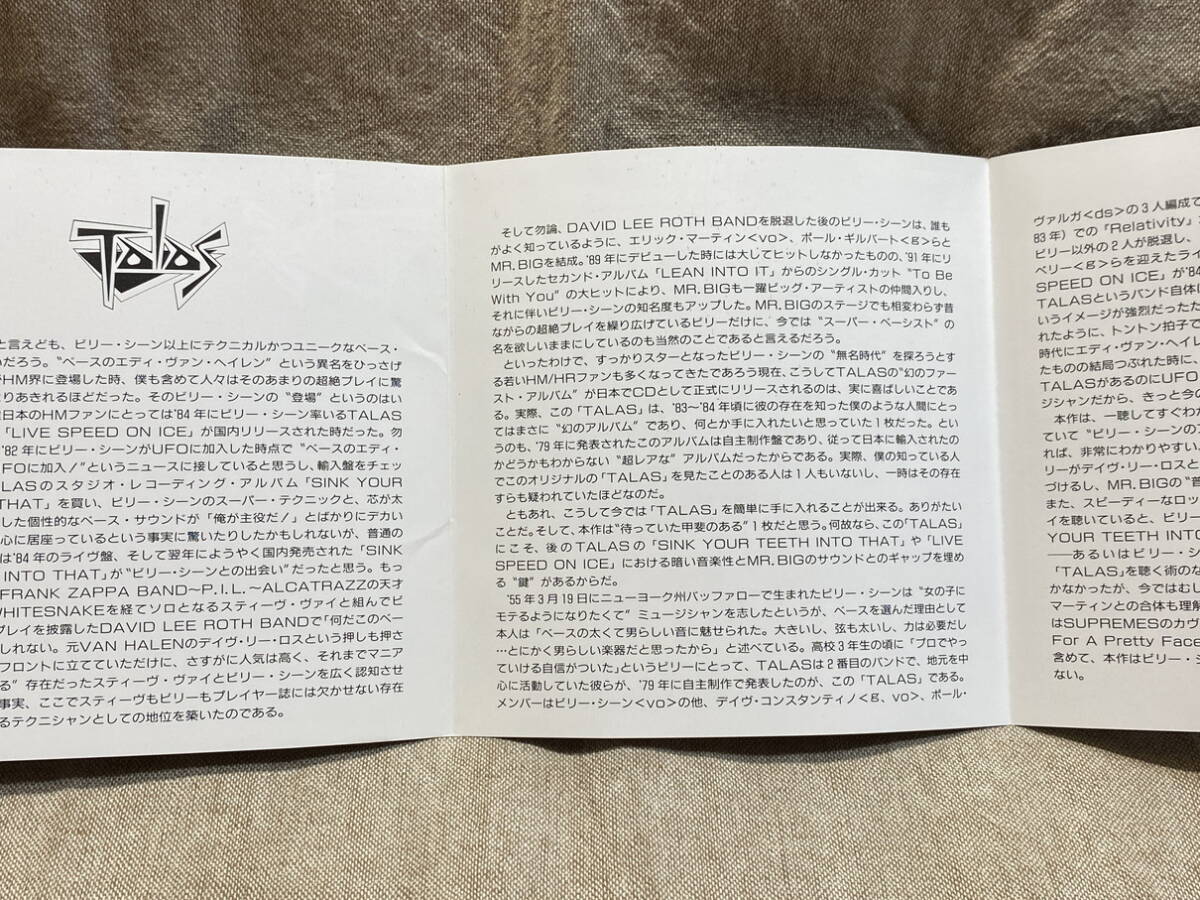 Talas
と言えども、ビリー・シーン以上にテクニカルかつユニークなベース・
いだろう。“ベースのエディ・ヴァン・ヘイレン”という異名をひっさげ
がHM界に登場した時、僕も含めて人々はそのあまりの超絶プレイに驚
よりあきれるほどだった。そのビリー・シーンの“登場”というのはい
日本のHMファンにとっては’84年にビリー・シーン率いるTALAS
「LIVE SPEED ON ICE」が国内リリースされた時だった。勿
’82年にビリー・シーンがUFOに加入した時点で“ベースのエディ・
UFOに加入！”というニュースに接していると思うし、輸入盤をチェッ
ALASのスタジオ・レコーディング・アルバム「SINK YOUR
THAT」を買い、ビリー・シーンのスーパー・テクニックと、芯が太
した個性的なベース・サウンドが「俺が主役だ！」とばかりにデカい
心に居座っているという事実に驚いたりしたかもしれないが、普通の
は’84年のライヴ盤、そして翌年にようやく国内発売された「SINK
INTO THAT」が“ビリー・シーンとの出会い”だったと思う。もっ
FRANK ZAPPA BAND〜P.I.L.〜ALCATRAZZの天才
WHITESNAKEを経てソロとなるスティーヴ・ヴァイと組んでビ
プレイを披露したDAVID LEE ROTH BANDで「何だこのベー
しれない。元VAN HALENのデイヴ・リー・ロスという押しも押さ
フロントに立てていただけに、さすがに人気は高く、それまでマニア
る”存在だったスティーヴ・ヴァイとビリー・シーンを広く認知させ
事実、ここでスティーヴもビリーもプレイヤー誌には欠かせない存在
るテクニシャンとしての地位を築いたのである。
そして勿論、DAVID LEE ROTH BANDを脱退した後のビリー・シーンは、誰も
がよく知っているように、エリック・マーティン<vo>、ポール・ギルバート<g>らと
MR. BIGを結成。’89年にデビューした時には大してヒットしなかったものの、’91年にリ
リースしたセカンド・アルバム「LEAN INTO IT」からのシングル・カット“To Be
With You”の大ヒットにより、MR. BIGも一躍ビッグ・アーティストの仲間入りし、
それに伴いビリー・シーンの知名度もアップした。MR. BIGのステージでも相変わらず昔
ながらの超絶プレイを繰り広げているビリーだけに、今では“スーパー・ベーシスト”の
名を欲しいままにしているのも当然のことであると言えるだろう。
といったわけで、すっかりスターとなったビリー・シーンの“無名時代”を探ろうとす
る若いHM/HRファンも多くなってきたであろう現在、こうしてTALASの“幻のファー
スト・アルバム”が日本でCDとして正式にリリースされるのは、実に喜ばしいことであ
る。実際、この「TALAS」は、’83〜’84年頃に彼の存在を知った僕のような人間にとっ
てはまさに“幻のアルバム”であり、何とか手に入れたいと思っていた1枚だった。とい
うのも、’79年に発表されたこのアルバムは自主制作盤であり、従って日本に輸入されたの
かどうかもわからない“超レアな”アルバムだったからである。実際、僕の知っている人
でこのオリジナルの「TALAS」を見たことのある人は1人もいないし、一時はその存在
すらも疑われていたほどなのだ。
ともあれ、こうして今では「TALAS」を簡単に手に入れることが出来る。ありがたい
ことだ。そして、本作は“待っていた甲斐のある”1枚だと思う。何故なら、この「TALAS」
にこそ、後のTALASの「SINK YOUR TEETH INTO THAT」や「LIVE
SPEED ON ICE」における暗い音楽性とMR. BIGのサウンドとのギャップを埋め
る“鍵”があるからだ。
’55年3月19日にニューヨーク州バッファローで生まれたビリー・シーンは“女の子に
モテるようになりたくて”ミュージシャンを志したというが、ベースを選んだ理由として
本人は「ベースの太くて男らしい音に魅せられた。大きいし、弦も太いし、力は必要だし
…とにかく男らしい楽器だと思ったから」と述べている。高校3年生の頃に「プロでやっ
ていける自信がついた」というビリーにとって、TALASは2番目のバンドで、地元を中
心に活動していた彼らが、’79年に自主制作で発表したのが、この「TALAS」である。
メンバーはビリー・シーン<vo>の他、デイヴ・コンスタンティノ<g、vo>、ポール・
ヴァルガ<ds>の3人編成で
83年）での「Relativity」
ビリー以外の2人が脱退し、
ペリー<g>らを迎えたライ
SPEED ON ICE」が’84
TALASというバンド自体に
いうイメージが強烈だったた
れたように、トントン拍子で
時代にエディ・ヴァン・ヘイレ
たものの結局つぶれた時に、
TALASがあるのにUFO
ジシャンだから、きっと今の
本作は、一聴してすぐわ
ていて“ビリー・シーンの
れば、非常にわかりやすい。
リーがデイヴ・リー・ロスと
づけるし、MR. BIGの“普
また、スピーディーなロッ
イを聴いていると、ビリー
YOUR TEETH INTO
――あるいはビリー・シ
「TALAS」を聴く術のな
かなかったが、今ではむし
マーティンとの合体も理解
はSUPREMESのカヴ
For A Pretty Face
含めて、本作はビリー・シ
ない。